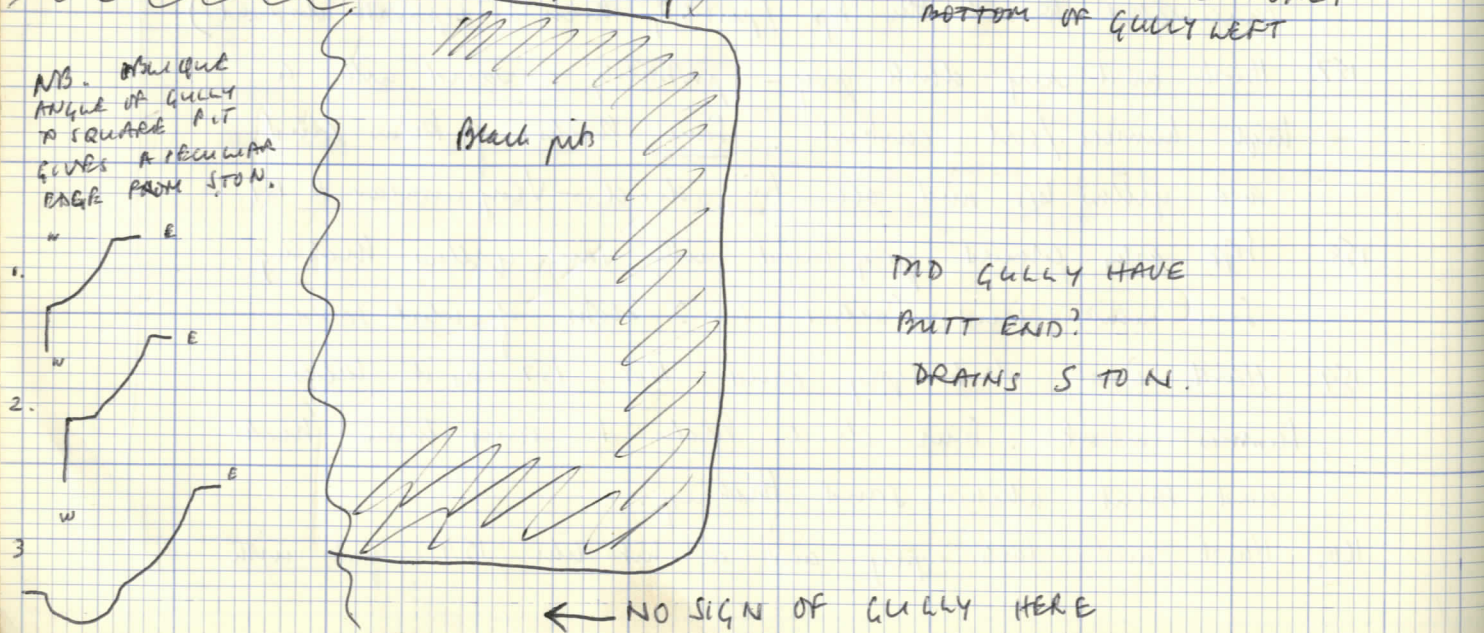 BOTTOM OF GULLY LEFT
NB. OBLIQUE
ANGLE OF GULLY
TO SQUARE PIT
GIVES A PECULIAR
EDGE FROM S TO N.
Black pits
W E
1.
W E
2.
W E
3
DID GULLY HAVE
BUTT END?
DRAINS S TO N.
← NO SIGN OF GULLY HERE